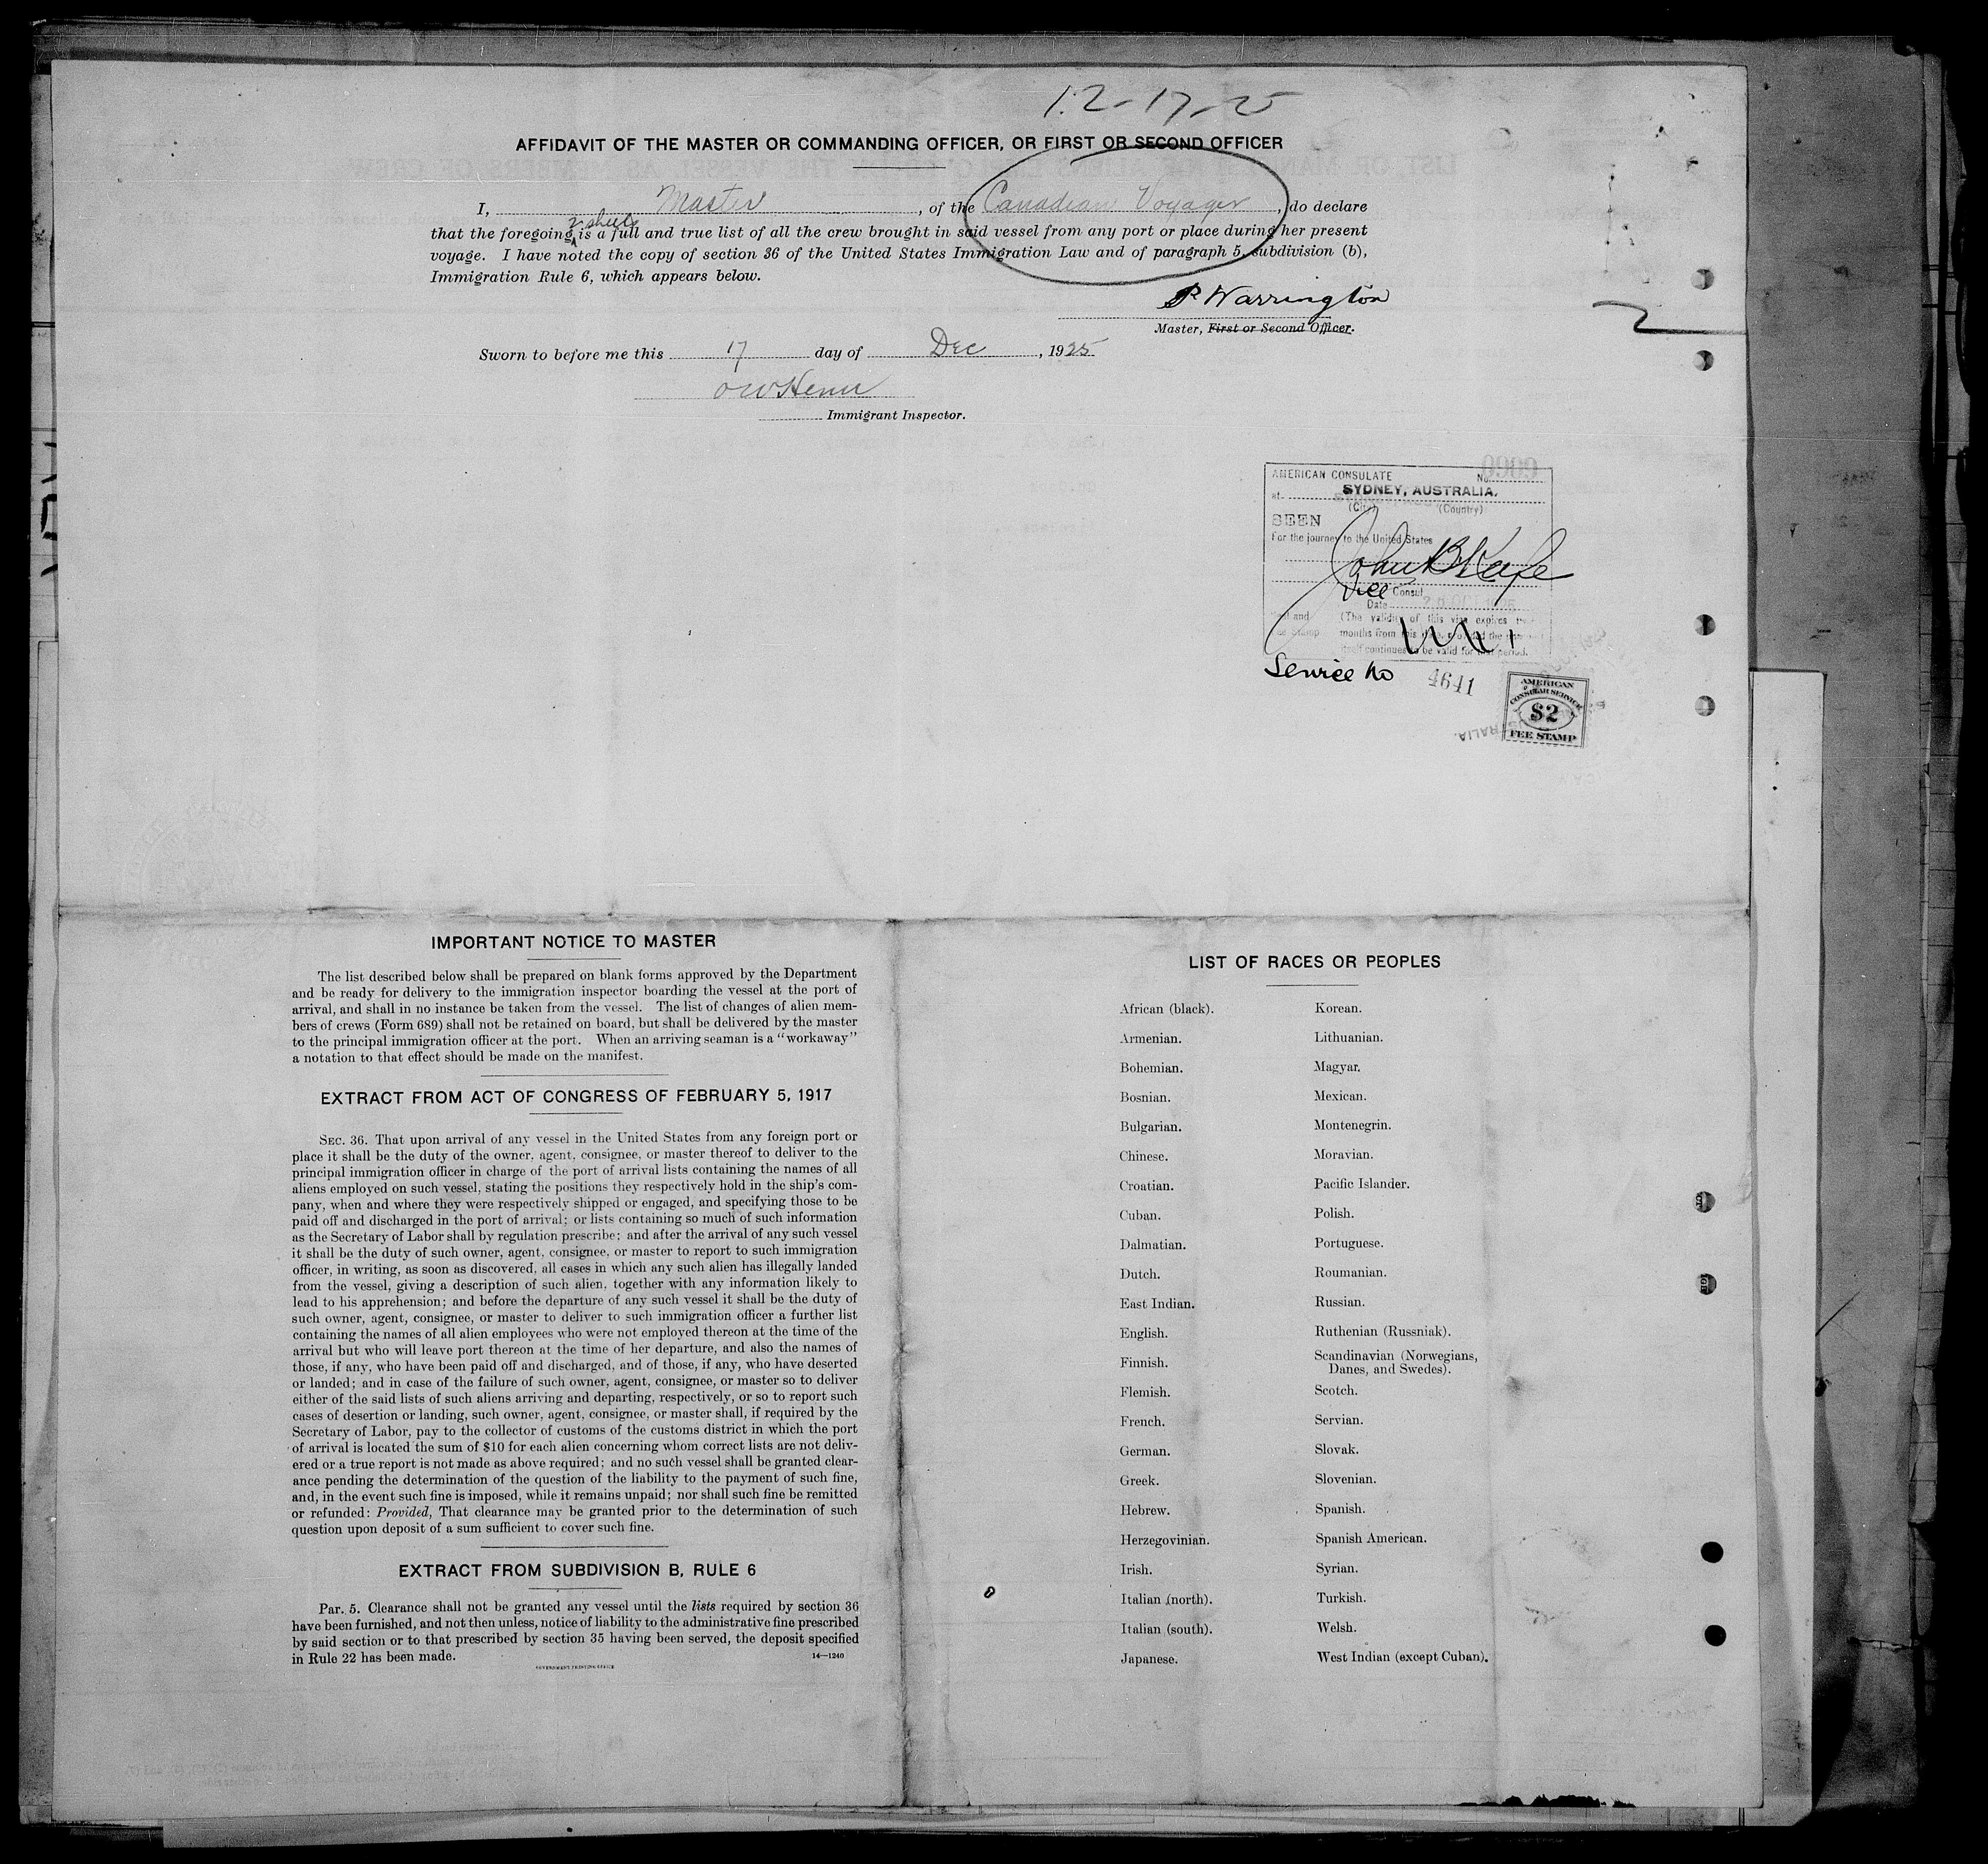 12-17-25
AFFIDAVIT OF THE MASTER OR COMMANDING OFFICER, OR FIRST OR SECOND OFFICER
I, Master, of the Canadian Voyager, do declare
2 sheets
that the foregoing is a full and true list of all the crew brought in said vessel from any port or place during her present
voyage. I have noted the copy of section 36 of the United States Immigration Law and of paragraph 5, subdivision (b),
Immigration Rule 6, which appears below.
P Warrington
Master, First or Second Officer.
Sworn to before me this 17 day of Dec, 1925
Immigrant Inspector.
AMERICAN CONSULATE No.
at SYDNEY, AUSTRALIA.
(City) (Country)
SEEN
For the journey to the United States
John
Vice Consul
Date
(The validity of this visa expires
months from this date, provided the
itself continues to be valid for that period.
Service No 4641
AMERICAN
CONSULAR SERVICE
$2
FEE STAMP
IMPORTANT NOTICE TO MASTER
The list described below shall be prepared on blank forms approved by the Department
and be ready for delivery to the immigration inspector boarding the vessel at the port of
arrival, and shall in no instance be taken from the vessel. The list of changes of alien mem-
bers of crews (Form 689) shall not be retained on board, but shall be delivered by the master
to the principal immigration officer at the port. When an arriving seaman is a "workaway"
a notation to that effect should be made on the manifest.
EXTRACT FROM ACT OF CONGRESS OF FEBRUARY 5, 1917
SEC. 36. That upon arrival of any vessel in the United States from any foreign port or
place it shall be the duty of the owner, agent, consignee, or master thereof to deliver to the
principal immigration officer in charge of the port of arrival lists containing the names of all
aliens employed on such vessel, stating the positions they respectively hold in the ship's com-
pany, when and where they were respectively shipped or engaged, and specifying those to be
paid off and discharged in the port of arrival; or lists containing so much of such information
as the Secretary of Labor shall by regulation prescribe; and after the arrival of any such vessel
it shall be the duty of such owner, agent, consignee, or master to report to such immigration
officer, in writing, as soon as discovered, all cases in which any such alien has illegally landed
from the vessel, giving a description of such alien, together with any information likely to
lead to his apprehension; and before the departure of any such vessel it shall be the duty of
such owner, agent, consignee, or master to deliver to such immigration officer a further list
containing the names of all alien employees who were not employed thereon at the time of the
arrival but who will leave port thereon at the time of her departure, and also the names of
those, if any, who have been paid off and discharged, and of those, if any, who have deserted
or landed; and in case of the failure of such owner, agent, consignee, or master so to deliver
either of the said lists of such aliens arriving and departing, respectively, or so to report such
cases of desertion or landing, such owner, agent, consignee, or master shall, if required by the
Secretary of Labor, pay to the collector of customs of the customs district in which the port
of arrival is located the sum of $10 for each alien concerning whom correct lists are not deliv-
ered or a true report is not made as above required; and no such vessel shall be granted clear-
ance pending the determination of the question of the liability to the payment of such fine,
and, in the event such fine is imposed, while it remains unpaid; nor shall such fine be remitted
or refunded: Provided, That clearance may be granted prior to the determination of such
question upon deposit of a sum sufficient to cover such fine.
EXTRACT FROM SUBDIVISION B, RULE 6
Par. 5. Clearance shall not be granted any vessel until the lists required by section 36
have been furnished, and not then unless, notice of liability to the administrative fine prescribed
by said section or to that prescribed by section 35 having been served, the deposit specified
in Rule 22 has been made.
14—1240
GOVERNMENT PRINTING OFFICE
LIST OF RACES OR PEOPLES
African (black). Korean.
Armenian. Lithuanian.
Bohemian. Magyar.
Bosnian. Mexican.
Bulgarian. Montenegrin.
Chinese. Moravian.
Croatian. Pacific Islander.
Cuban. Polish.
Dalmatian. Portuguese.
Dutch. Roumanian.
East Indian. Russian.
English. Ruthenian (Russniak).
Finnish. Scandinavian (Norwegians,
Danes, and Swedes).
Flemish. Scotch.
French. Servian.
German. Slovak.
Greek. Slovenian.
Hebrew. Spanish.
Herzegovinian. Spanish American.
Irish. Syrian.
Italian (north). Turkish.
Italian (south). Welsh.
Japanese. West Indian (except Cuban).